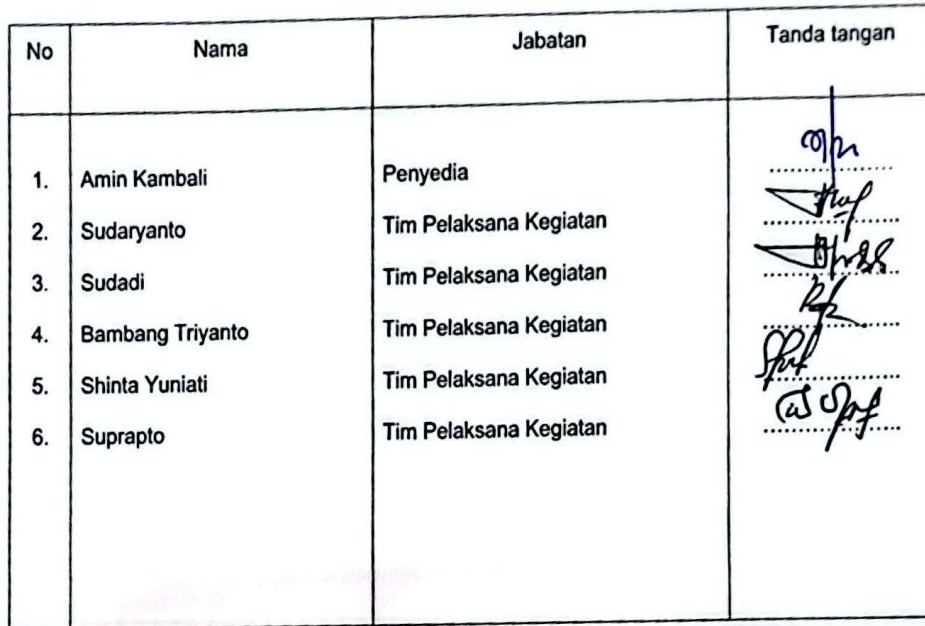 No Nama Jabatan Tanda tangan
1. Amin Kambali Penyedia ............
2. Sudaryanto Tim Pelaksana Kegiatan ............
3. Sudadi Tim Pelaksana Kegiatan ............
4. Bambang Triyanto Tim Pelaksana Kegiatan ............
5. Shinta Yuniati Tim Pelaksana Kegiatan ............
6. Suprapto Tim Pelaksana Kegiatan ............